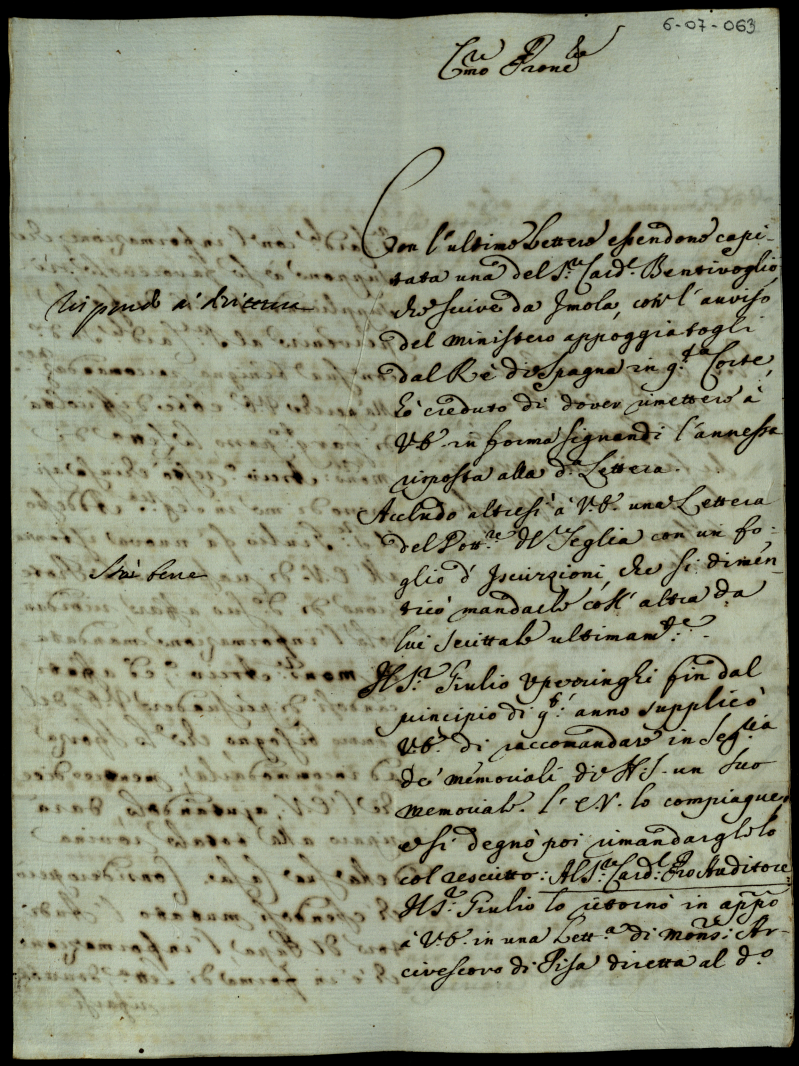 6-07-063
Emo Prone
Con l'ultime Lettere essendone capi-
tata una del S.r Card.l Bentivoglio
che scrive da Imola, coll'avviso
del ministero appoggiatogli
dal Rè di Spagna in q.ta Corte,
hò creduto di dover rimettere à
V.E. in forma signandi l'annessa
risposta alla d.a Lettera.
Rispondo a' dirittura
Accludo altresì à V.E. una Lettera
del Dott.re del Teglia con un fo-
glio d'Iscrizioni, che si dimen-
ticò mandarle coll'altra da
lui scrittale ultimam.te.
Stà bene
Il S.r Giulio Upezzinghi fin dal
principio di q.to anno supplicò
V.E. di raccomandare in Seg.ria
de' memoriali di N.S. un suo
memoriale. l'E.V. lo compiacque,
e si degnò poi rimandarglielo
col rescritto: Al S.r Card.l Pro Auditore.
Il S.r Giulio lo ritornò in app.o
à V.E. in una Lett.a di Mons.r Ar-
civescovo di Pisa diretta al d.o